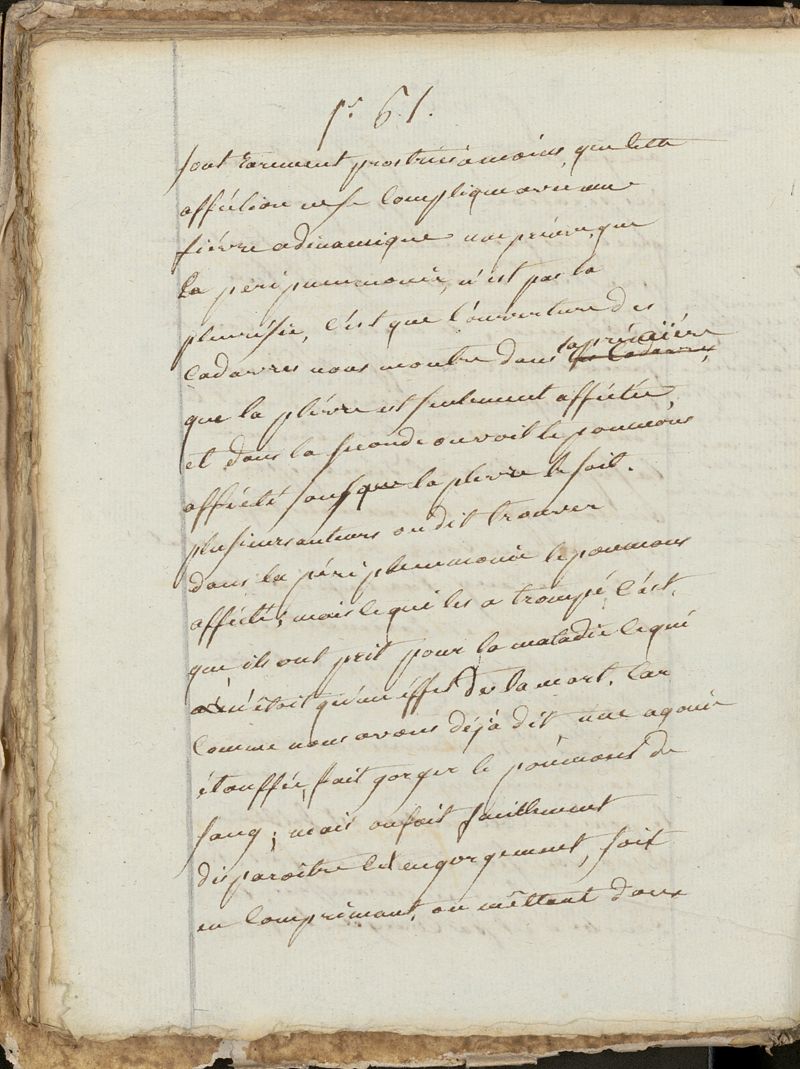 p.r 61.
sont rarement prostrés à moins, que cette
afféction ne se complique avec une
fièvre adinamique une preuve, que
la péripneumonie, n'est pas la
pleurésie, c'est que l'ouverture des
cadavres nous montre dans la première les cadavres,
que la plévre est seulement afféctée,
et dans la seconde on voit le poumons
affécté sans que la plevre le soit.
plusieurs auteurs on dit trouver
dans la péripleumonie le poumons
affécté; mais ce qui les a trompé, c'ést
que ils ont prit pour la maladie ce qui
n'étoit qu'un éffet de la mort. Car
comme nous avons déjà dit une agonie
étouffée, fait gorger le poûmons de
sang; mais on fait facillement
disparoître cet engorgement, soit
en comprimant, ou mêttent dans